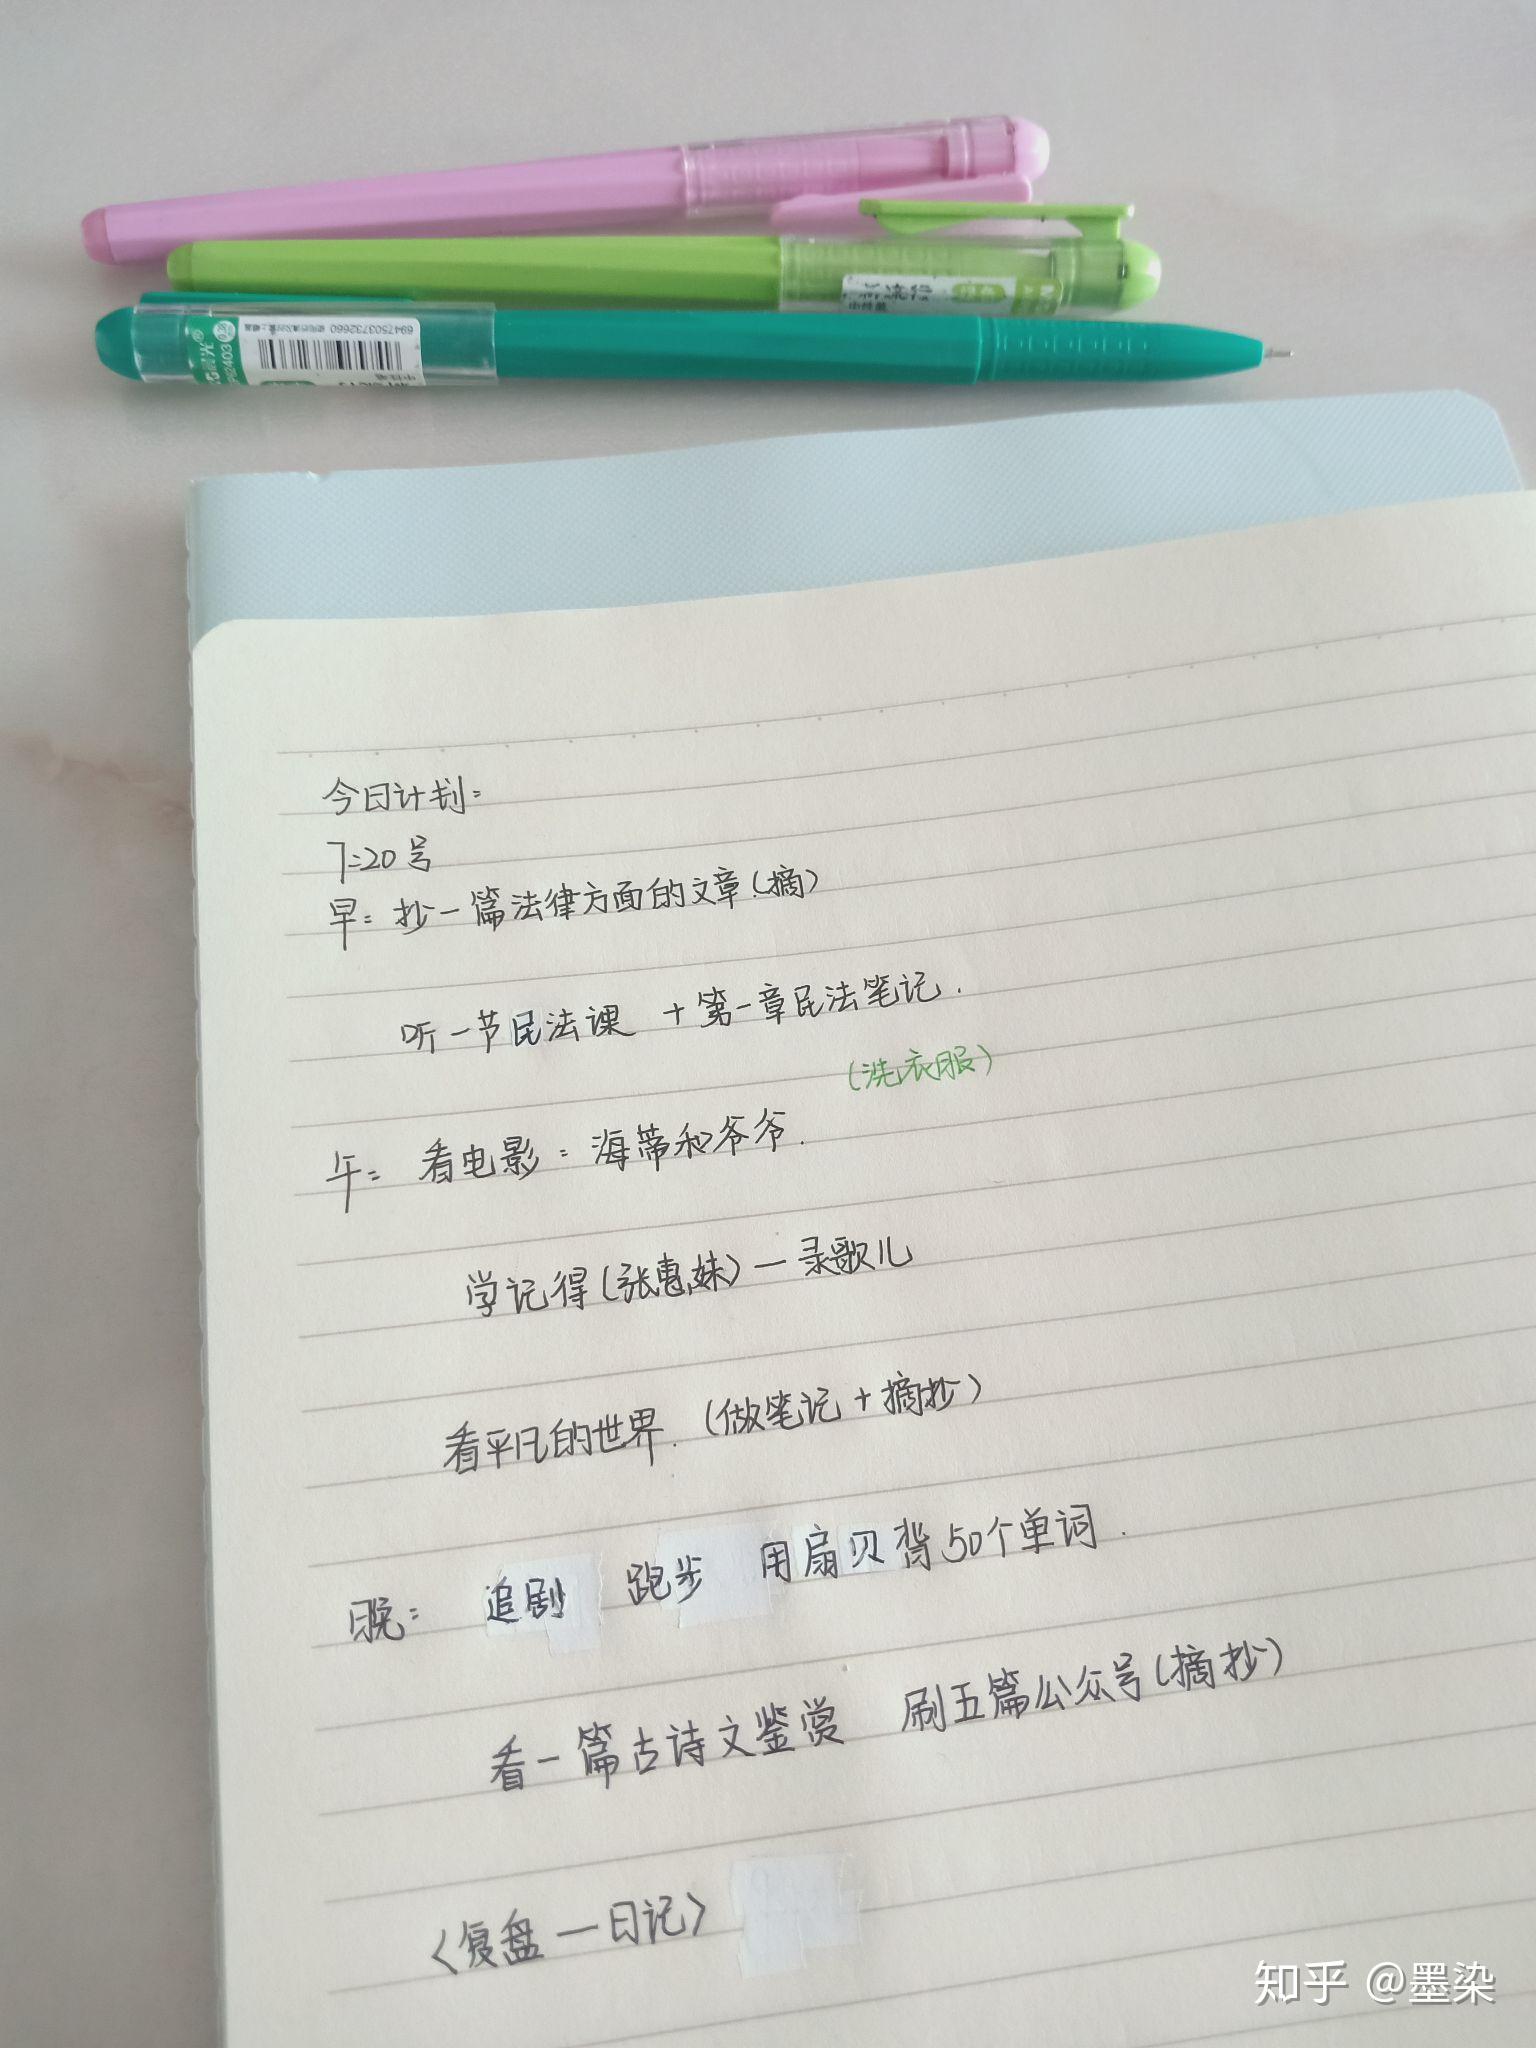 6947503732660
今日计划:
7:20号
早: 抄一篇法律方面的文章(摘)
听一节民法课 +第一章民法笔记.
(洗衣服)
午: 看电影: 海蒂和爷爷.
学记得(张惠妹)一录歌儿
看平凡的世界.(做笔记+摘抄)
晚: 追剧 跑步 用扇贝背50个单词.
看一篇古诗文鉴赏 刷五篇公众号(摘抄)
〈复盘一日记〉
知乎 @墨染